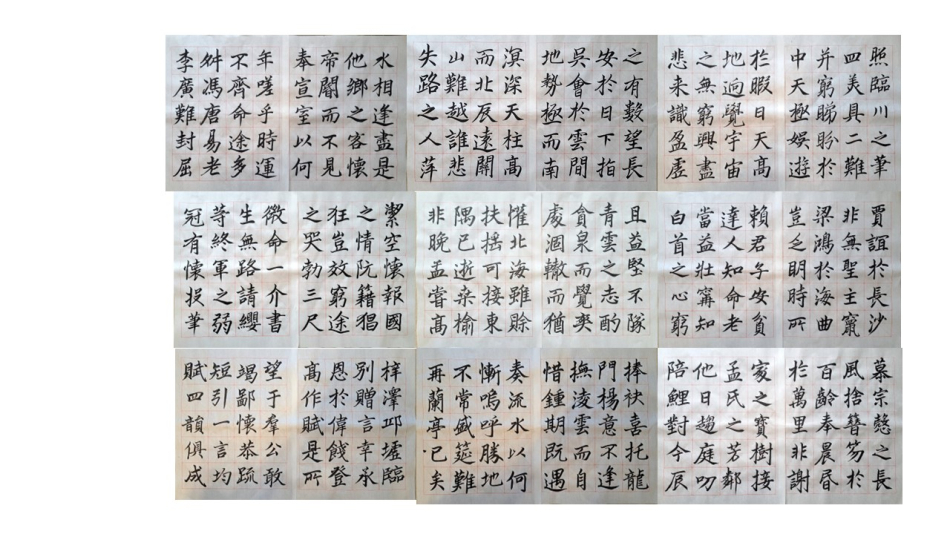 照臨川之筆
四美具二難
并窮睇眄於
中天極娛遊
於暇日天高
地迥覺宇宙
之無窮興盡
悲来識盈虛
之有數望長
安於日下指
吳會於雲間
地勢極而南
溟深天柱高
而北辰遠關
山難越誰悲
失路之人萍
水相逢盡是
他鄉之客懷
帝閽而不見
奉宣室以何
年嗟乎時運
不齊命途多
舛馮唐易老
李廣難封屈
賈誼於長沙
非無聖主竄
梁鴻於海曲
豈乏明時所
賴君子安貧
達人知命老
當益壯寗知
白首之心窮
且益堅不隊
青雲之志酌
貪泉而覺爽
處涸轍而猶
懽北海雖賒
扶搖可接東
隅已逝桑榆
非晚孟嘗高
潔空懷報國
之情阮籍猖
狂豈效窮途
之哭勃三尺
微命一介書
生無路請纓
等終軍之弱
冠有懷投筆
慕宗愨之長
風捨簪笏於
百齡奉晨昏
於萬里非謝
家之寶樹接
孟氏之芳鄰
他日趨庭叨
陪鯉對今辰
捧袂喜托龍
門楊意不逢
撫淩雲而自
惜鍾期既遇
奏流水以何
慚嗚呼勝地
不常盛筵難
再蘭亭已矣
梓澤邱墟臨
別贈言幸承
恩於偉餞登
高作賦是所
望于羣公敢
竭鄙懷恭疏
短引一言均
賦四韻俱成